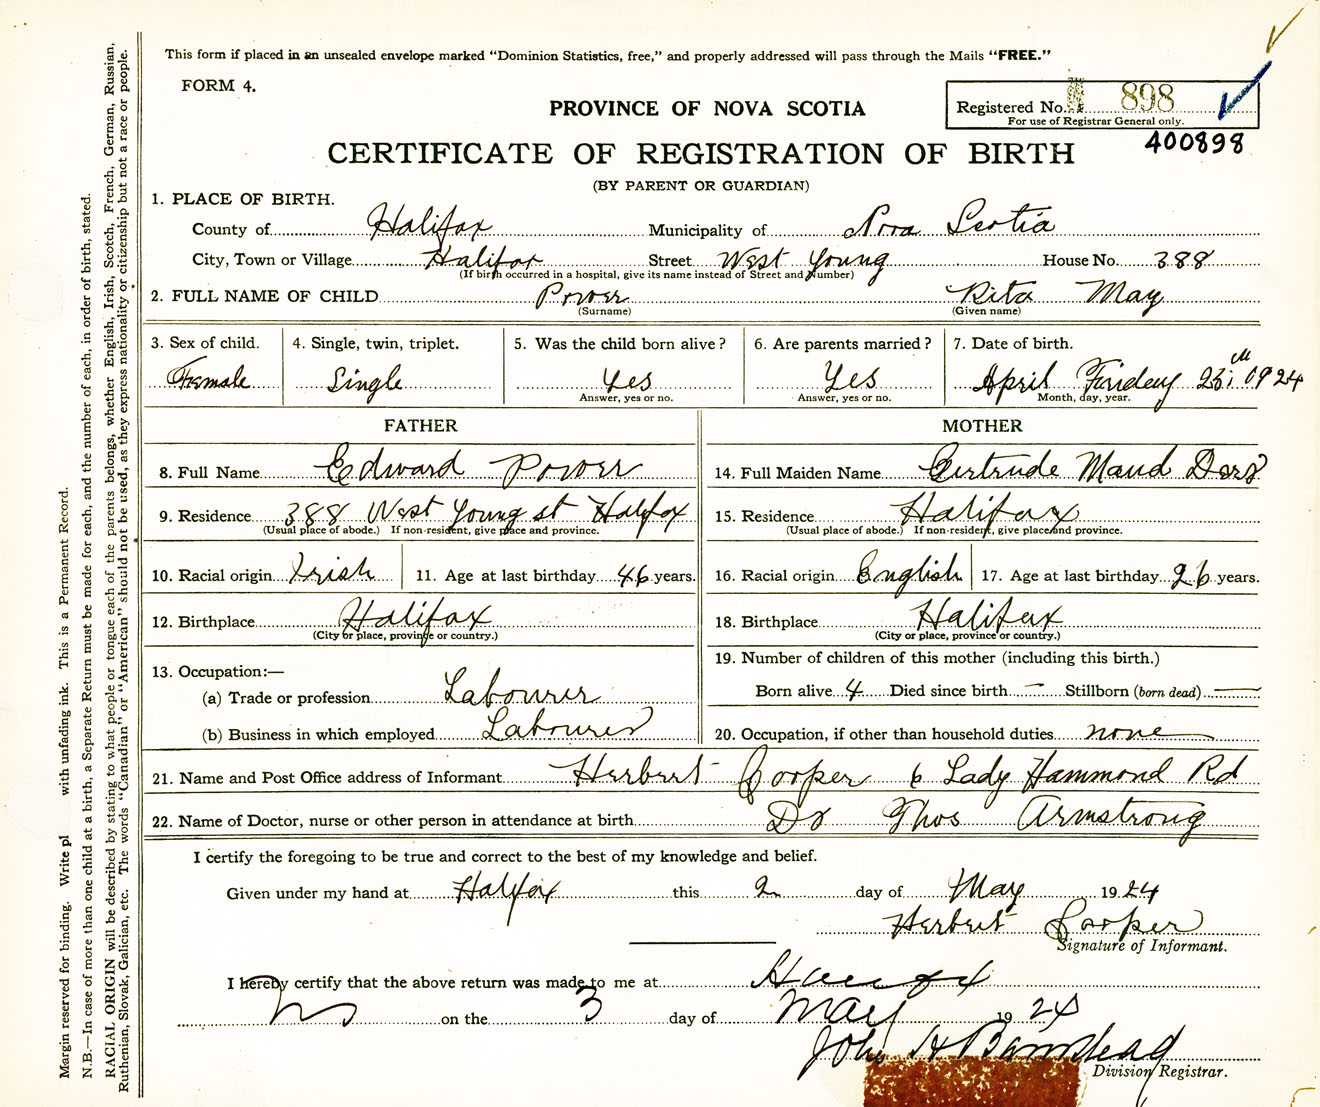 This form if placed in an unsealed envelope marked "Dominion Statistics, free," and properly addressed will pass through the Mails "FREE."
FORM 4.
PROVINCE OF NOVA SCOTIA
Registered No. 898
For use of Registrar General only.
400898
CERTIFICATE OF REGISTRATION OF BIRTH
(BY PARENT OR GUARDIAN)
1. PLACE OF BIRTH.
County of Halifax Municipality of Nova Scotia
City, Town or Village Halifax Street West Young House No. 388
(If birth occurred in a hospital, give its name instead of Street and Number)
2. FULL NAME OF CHILD Power Rita May
(Surname) (Given name)
3. Sex of child. 4. Single, twin, triplet. 5. Was the child born alive? 6. Are parents married? 7. Date of birth.
Female Single Yes Yes April 1924
Answer, yes or no. Answer, yes or no. Month, day, year.
FATHER MOTHER
8. Full Name Edward Power 14. Full Maiden Name Gertrude Maud
9. Residence 388 West Young st Halifax 15. Residence Halifax
(Usual place of abode.) If non-resident, give place and province. (Usual place of abode.) If non-resident, give place and province.
10. Racial origin Irish 11. Age at last birthday 46 years. 16. Racial origin English 17. Age at last birthday 26 years.
12. Birthplace Halifax 18. Birthplace Halifax
(City or place, province or country.) (City or place, province or country.)
13. Occupation:— 19. Number of children of this mother (including this birth.)
(a) Trade or profession Labourer Born alive 4 Died since birth — Stillborn (born dead) —
(b) Business in which employed Labourer 20. Occupation, if other than household duties none
21. Name and Post Office address of Informant Herbert Cooper 6 Lady Hammond Rd
22. Name of Doctor, nurse or other person in attendance at birth Dr Thos Armstrong
I certify the foregoing to be true and correct to the best of my knowledge and belief.
Given under my hand at Halifax this 2 day of May 1924
Herbert Cooper
Signature of Informant.
I hereby certify that the above return was made to me at Halifax
NS on the 3 day of May 1924
John H
Division Registrar.
Margin reserved for binding. Write pl with unfading ink. This is a Permanent Record.
N.B.—In case of more than one child at a birth, a Separate Return must be made for each, and the number of each, in order of birth, stated.
RACIAL ORIGIN will be described by stating to what people or tongue each of the parents belongs, whether English, Irish, Scotch, French, German, Russian,
Ruthenian, Slovak, Galician, etc. The words "Canadian" or "American" should not be used, as they express nationality or citizenship but not a race or people.